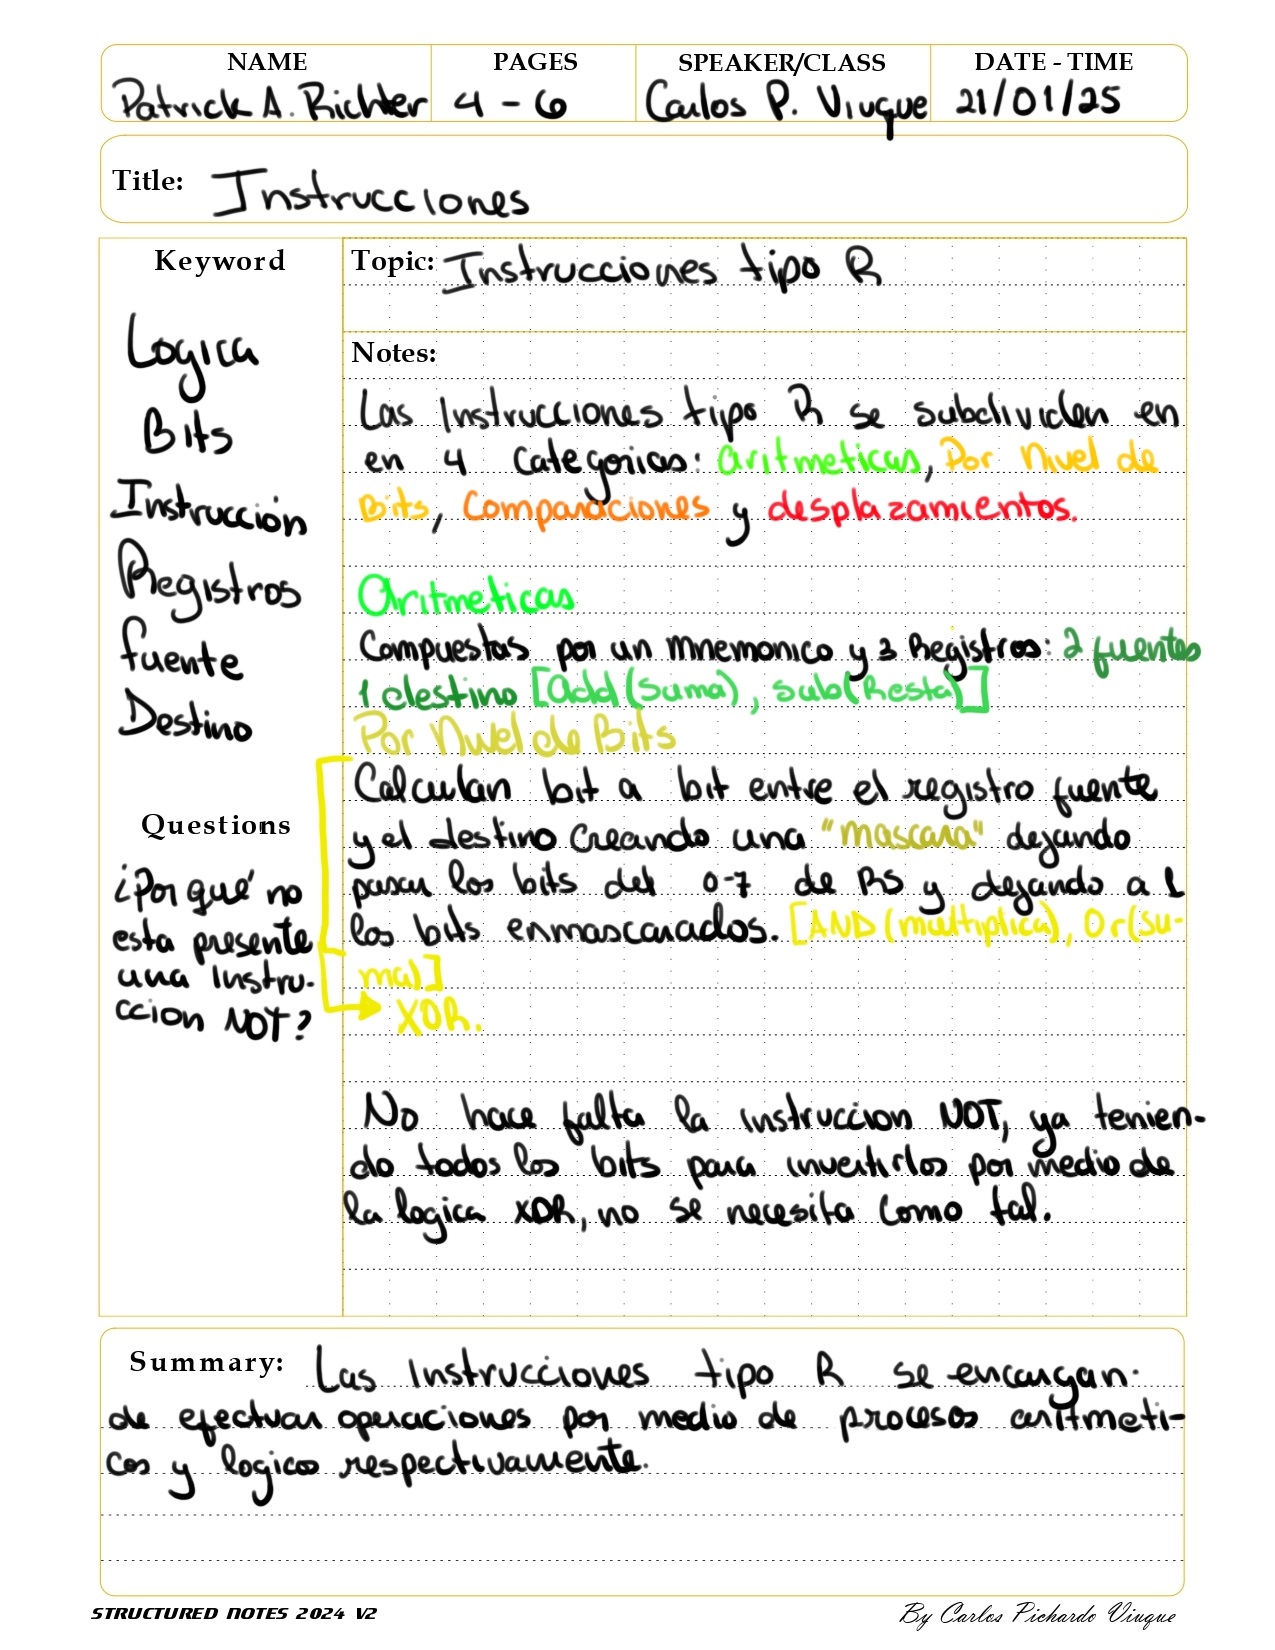 NAME PAGES SPEAKER/CLASS DATE - TIME
Patrick A. Richter 4 - 6 Carlos P. Viuque 21/01/25
Title: Instrucciones
Keyword
Logica
Bits
Instruccion
Registros
fuente
Destino
Questions
¿Por qué no
esta presente
una Instru-
ccion NOT?
Topic: Instrucciones tipo R
Notes:
Las Instrucciones tipo R se subdividen en
en 4 Categorias: aritmeticas, Por Nivel de
Bits, Comparaciones y desplazamientos.
Aritmeticas
Compuestas por un mnemonico y 3 Registros: 2 fuentes
1 destino [Add (suma), sub (Resta)]
Por Nivel de Bits
Calculan bit a bit entre el registro fuente
y el destino Creando una "mascara" dejando
pasar los bits del 0-7 de RS y dejando a 1
los bits enmascarados. [AND (multiplica), Or (su-
ma)]
XOR.
No hace falta la instruccion NOT, ya tenien-
do todos los bits para invertirlos por medio de
la logica XOR, no se necesita como tal.
Summary: Las Instrucciones tipo R se encargan.
de efectuar operaciones por medio de procesos aritmeti-
cos y logicos respectivamente.
STRUCTURED NOTES 2024 V2 By Carlos Pichardo Viuque